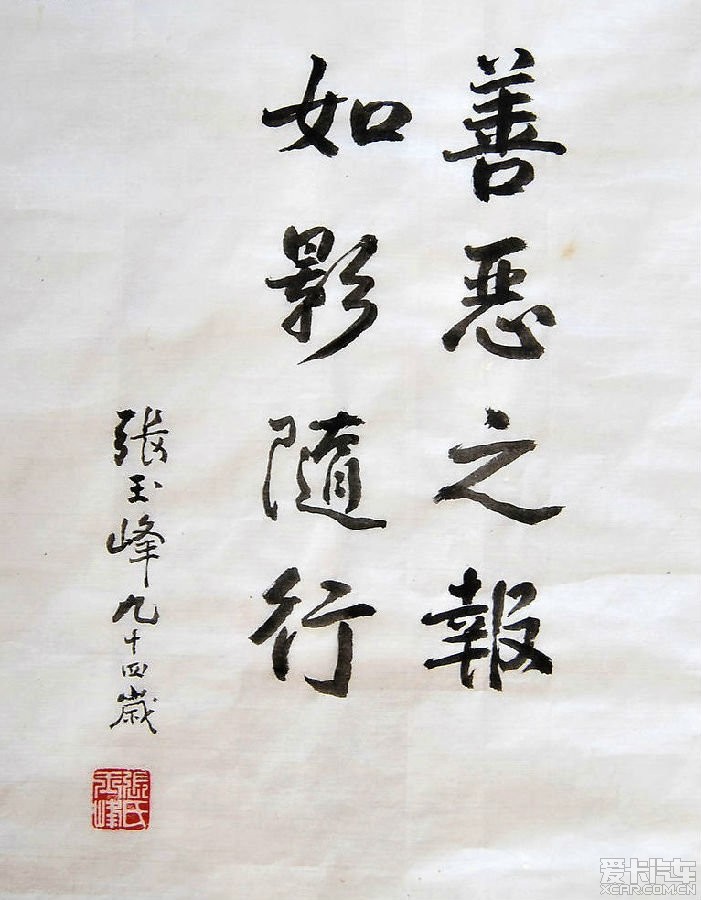 善惡之報
如影隨行
張玉峰九十四歲
張氏玉峰
爱卡汽车
XCAR.COM.CN